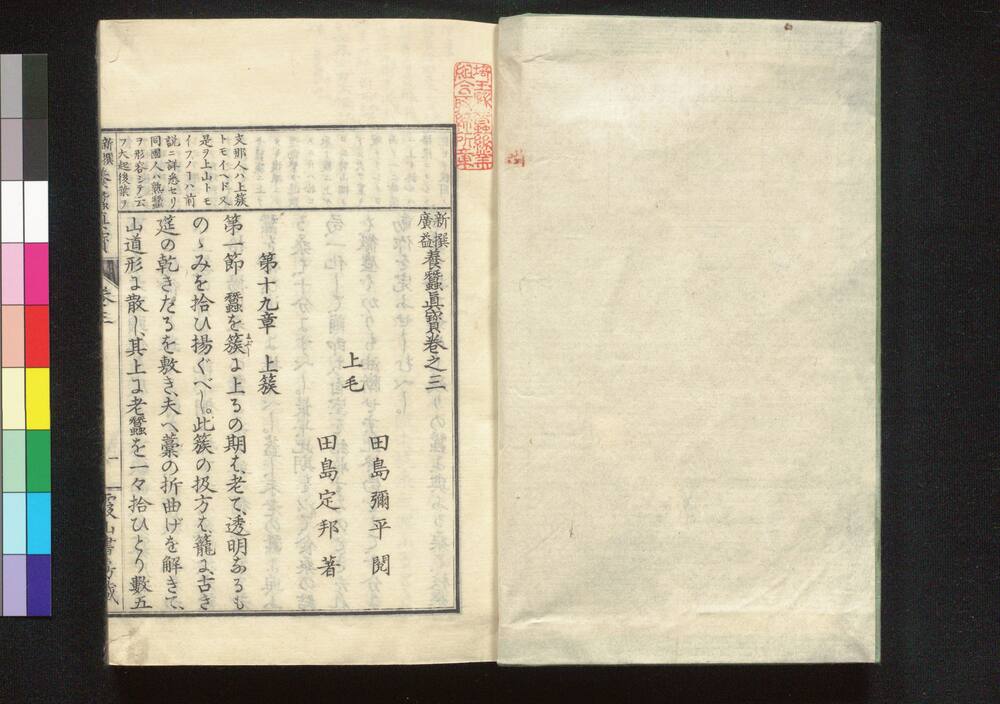 新撰
廣益
養蠶眞寶卷之三
上毛
田島彌平 閲
田島定邦 著
第十九章 上簇
第一節 蠶を簇に上るの期は、老て、透明なるも
のゝみを拾ひ揚ぐべし。此簇の扱方は、籠に、古き
莚の乾きたるを敷き、夫へ藁の折曲げを解きて、
山道形に散し、其上に老蠶を一々拾ひとり數五
支那人ハ上簇
トモイヘド又
是ヲ上山トモ
イフノーハ前
説ニ詳悉セリ
同國人ハ熟蠶
ヲ形容シテ云
フ大起後葉ヲ
新撰
養蠶眞寶
卷三
一